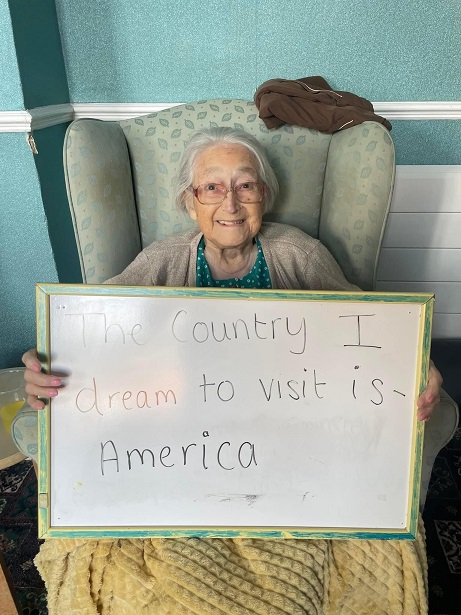 The Country I
dream to visit is-
America